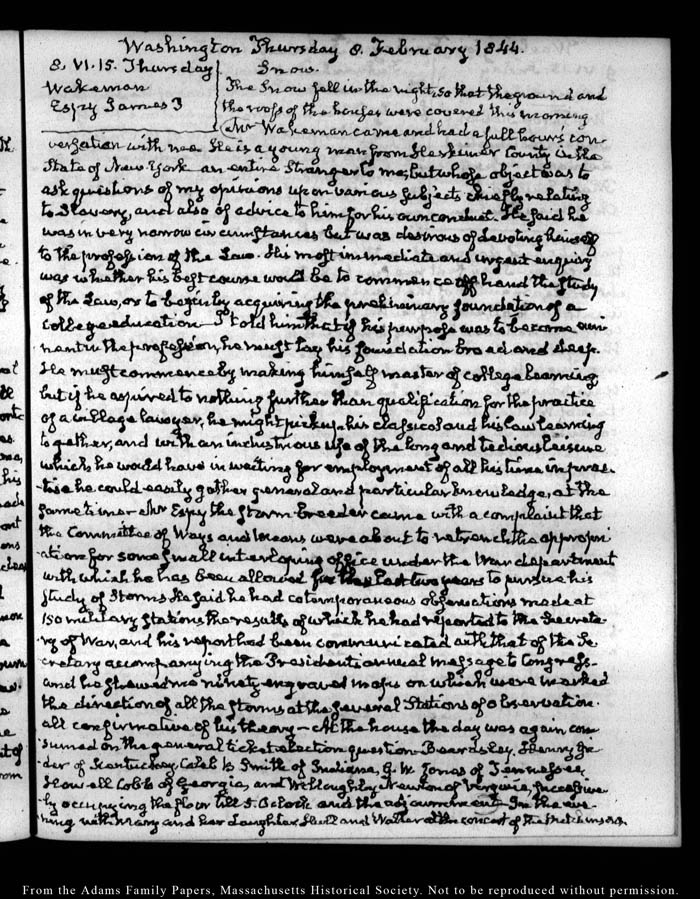 Washington Thursday 8. February 1844.
8. VI. 15. Thursday
Wakeman
Espy James 3
Snow.
The Snow fell in the night, so that the ground and
the roofs of the houses were covered this morning
Mr Wakeman came and had a full hour's con-
versation with me. He is a young man from Herkimer County in the
State of New York an entire Stranger to me, but whose object was to
ask questions of my opinions upon various subjects chiefly relating
to Slavery, and also of advice to him for his own conduct. He said he
was in very narrow circumstances but was desirous of devoting himself
to the profession of the Law. His most immediate and urgent enquiry
was whether his best course would be to commence off hand the study
of the Law, or to begin by acquiring the preliminary foundation of a
college education— I told him that if his purpose was to become emi-
nent in the profession, he must lay his foundation broad and deep.
He must commence by making himself master of college learning,
but if he aspired to nothing further than qualification for the practice
of a village lawyer, he might pick up his classical and his law learning
together, and with an industrious use of the long and tedious leisure
which he would have in waiting for employment of all his time in prac-
-tice he could easily gather general and particular knowledge, at the
same time— Mr Espy the storm-breeder came with a complaint that
the Committee of Ways and Means were about to retrench the appropri-
-ation for some small interloping office under the War department
with which he has been allowed for the last two years to pursue his
study of Storms. He said he had cotemporaneous observations made at
150 military stations the results of which he had reported to the Secreta-
ry of War, and his report had been communicated with that of the Se-
cretary accompanying the President's annual message to Congress—
and he shewed me ninety engraved maps on which were marked
the direction of all the storms at the several Stations of observation.
all confirmative of his theory— At the house the day was again con-
sumed on the general ticket election question. Beardsley, Henry Gri-
der of Kentucky, Caleb B Smith of Indiana, G. W. Jones of Tennessee
Howell Cobb of Georgia, and Willoughby Newton of Virginia, successive-
ly occupying the floor till 5. O'Clock and the adjournment— In the eve-
ning with Mary and her daughter I and Walter at the concert of the Hutchinsons.
From the Adams Family Papers, Massachusetts Historical Society. Not to be reproduced without permission.